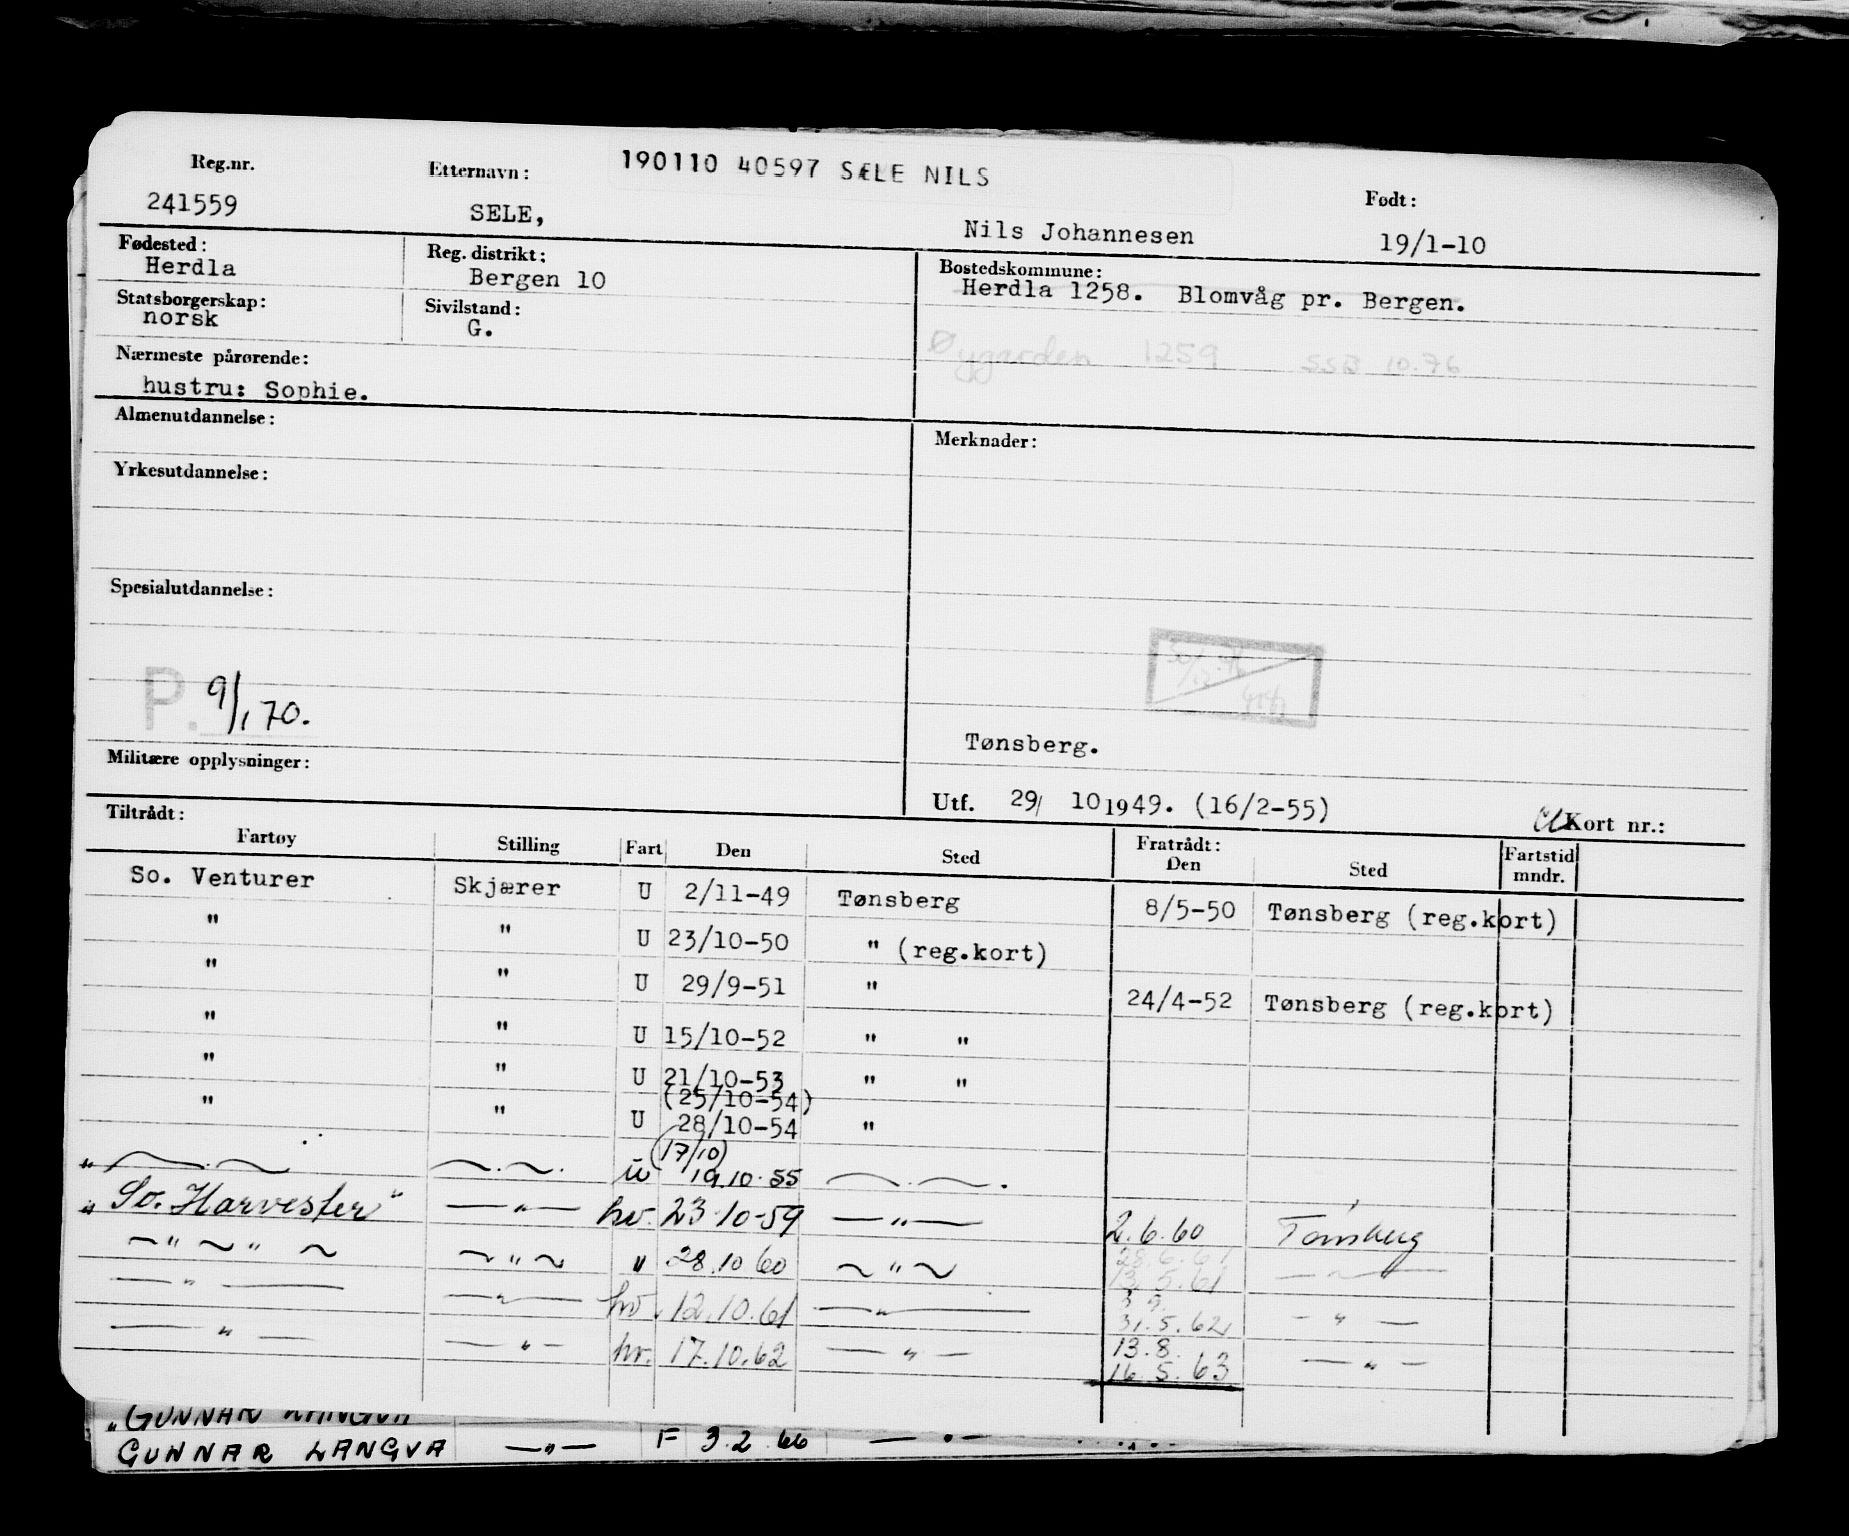 190110 40597 SÆLE NILS
Reg.nr. Etternavn: Født:
241559 SELE, Nils Johannesen 19/1-10
Fødested: Reg. distrikt: Bostedskommune:
Herdla Bergen 10 Herdla 1258. Blomvåg pr. Bergen.
Statsborgerskap: Sivilstand:
norsk G.
Øygarden 1259 SSB 10.76
Nærmeste pårørende:
hustru: Sophie.
Almenutdannelse: Merknader:
Yrkesutdannelse:
Spesialutdannelse:
P. 9/1 70.
Tønsberg.
Militære opplysninger:
Utf. 29/ 10 1949. (16/2-55) Kort nr.:
Tiltrådt: Fratrådt:
Fartøy Stilling Fart Den Sted Den Sted Fartstid mndr.
So. Venturer Skjærer U 2/11-49 Tønsberg 8/5-50 Tønsberg (reg.kort)
" " U 23/10-50 " (reg.kort)
" " U 29/9-51 " 24/4-52 Tønsberg (reg.kort)
" " U 15/10-52 " "
" " U 21/10-53 " "
(25/10-54)
" " U 28/10-54 "
(17/10)
" u 19.10.55
"So. Harvester" — " — hv. 23.10-59 — " — 2.6.60 Tønsberg
28.6.61
~ " ~ " ~ ~ " ~ " 28.10 60 ~ " ~ 13.5.61
3.9.
— " — — " — hv. 12.10.61 — " — 31.5.62 — " —
13.8.
— " — — " — hv. 17.10.62 — " — 16.5.63 — " —
"GUNNAR LANGVA
GUNNAR LANGVA — " — F 3.2.66 — " —